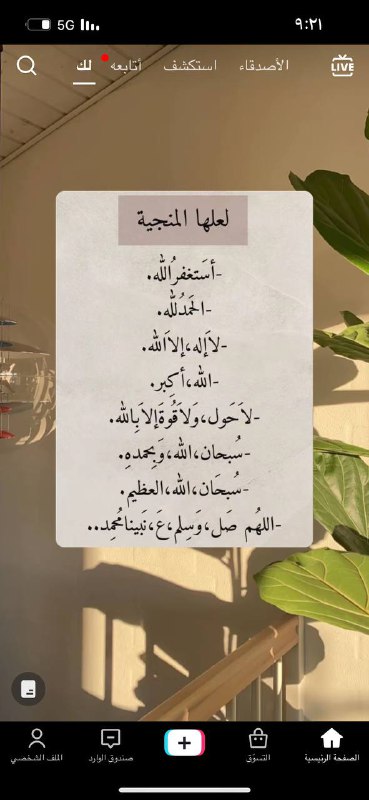 ٩:٢١
5G
لك
أتابعه
استكشف
الأصدقاء
LIVE
لعلها المنجية
-أستَغفرُالله.
-الحَمدُلله.
-لاَإله،إلاَالله.
-الله،أكبِر.
-لاَحَول،وَلاَقُوةَإلاَبِالله.
-سُبحان،الله،وَبِحمدهِ.
-سُبحَان،الله،العظيم.
-اللهُم صَل،وَسِلم،عَ،نَبينامُحمِد..
الصفحة الرئيسية
التسوّق
صندوق الوارد
الملف الشخصي